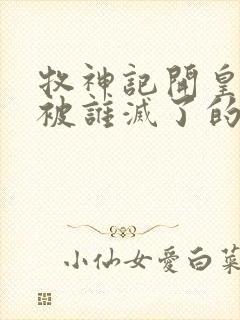 牧神記開皇
被誰滅了的
小仙女愛白菜